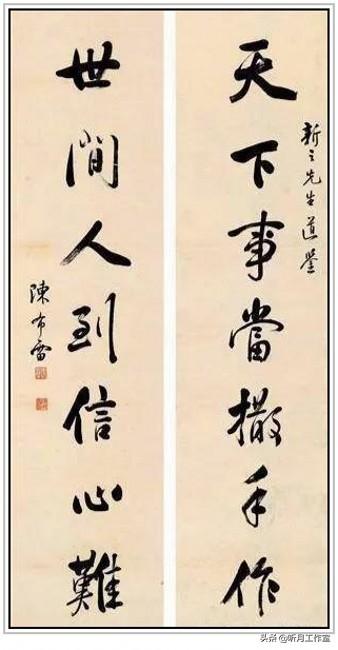 新之先生道鑒
天下事當撒手作
世間人到信心難
陳布雷
头条 @昕月工作室